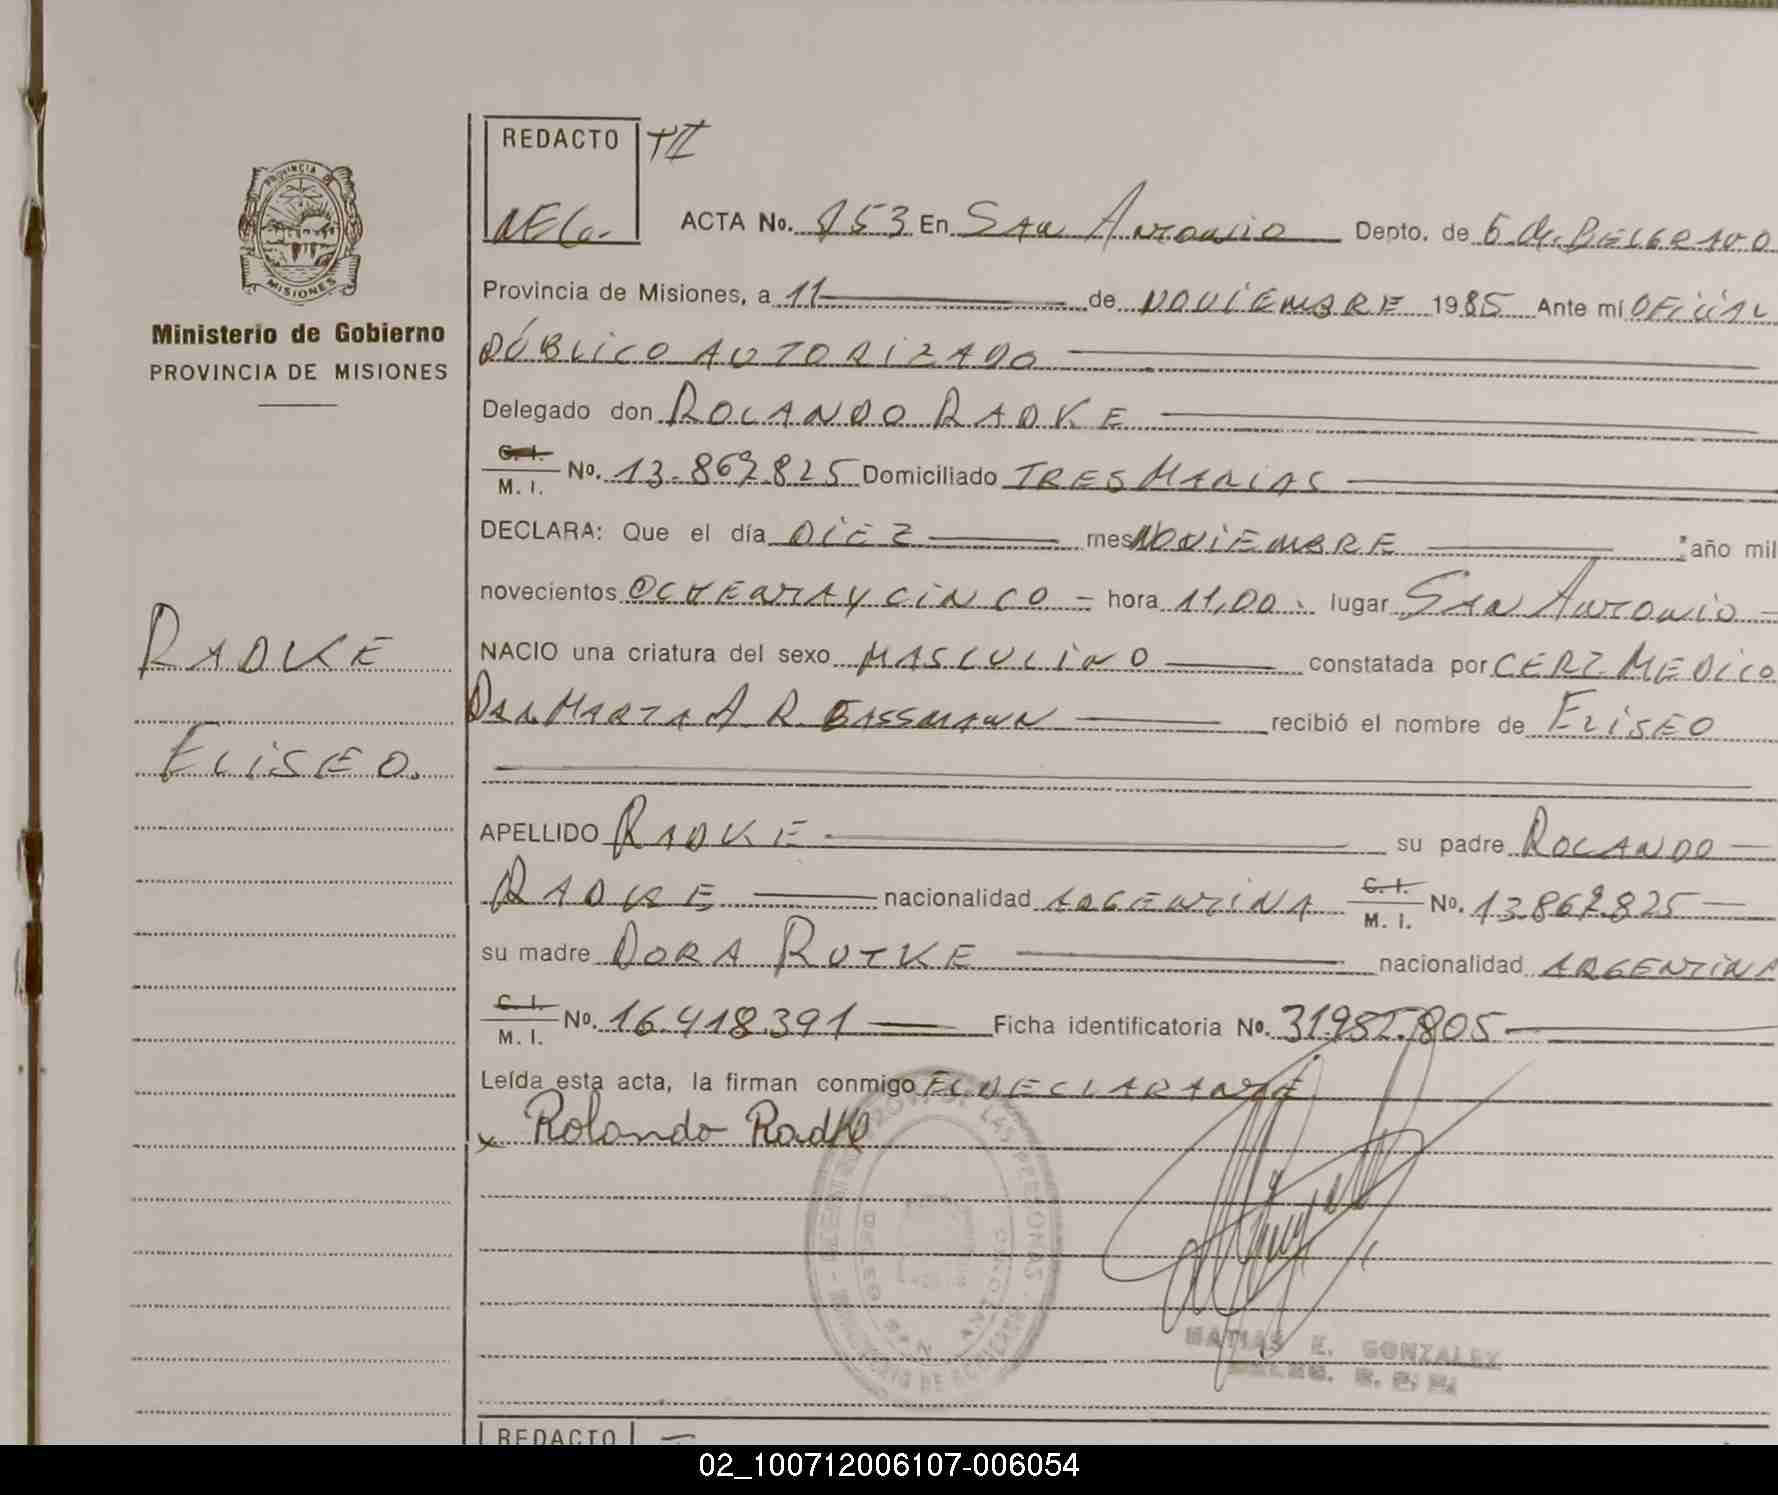 REDACTO TII
MEG.
ACTA No. 153 En SAN ANTONIO Depto. de G. de. BELGRANO
Provincia de Misiones, a 11 de NOVIEMBRE 1985 Ante mí OFICIAL
PÚBLICO AUTORIZADO
Delegado don ROLANDO RADKE
C. I.
M. I. No. 13.869.825 Domiciliado TRES MARIAS
DECLARA: Que el día DIEZ mes NOVIEMBRE año mil
novecientos OCHENTA Y CINCO - hora 11,00 lugar SAN ANTONIO -
NACIO una criatura del sexo MASCULINO constatada por CERT. MEDICO
DRA. MARTA A R GASSMANN recibió el nombre de ELISEO
APELLIDO RADKE su padre ROLANDO
RADKE nacionalidad ARGENTINA C. I.
M. I. No. 13.869.825
su madre DORA RUTKE nacionalidad ARGENTINA
C. I.
M. I. No. 16.418.391 Ficha identificatoria No. 31.985.805
Leída esta acta, la firman conmigo EL DECLARANTE
x Rolando Radke
MATIAS E. GONZALEZ
PROVINCIA DE
MISIONES
Ministerio de Gobierno
PROVINCIA DE MISIONES
RADKE
ELISEO.
REDACTO
02_100712006107-006054